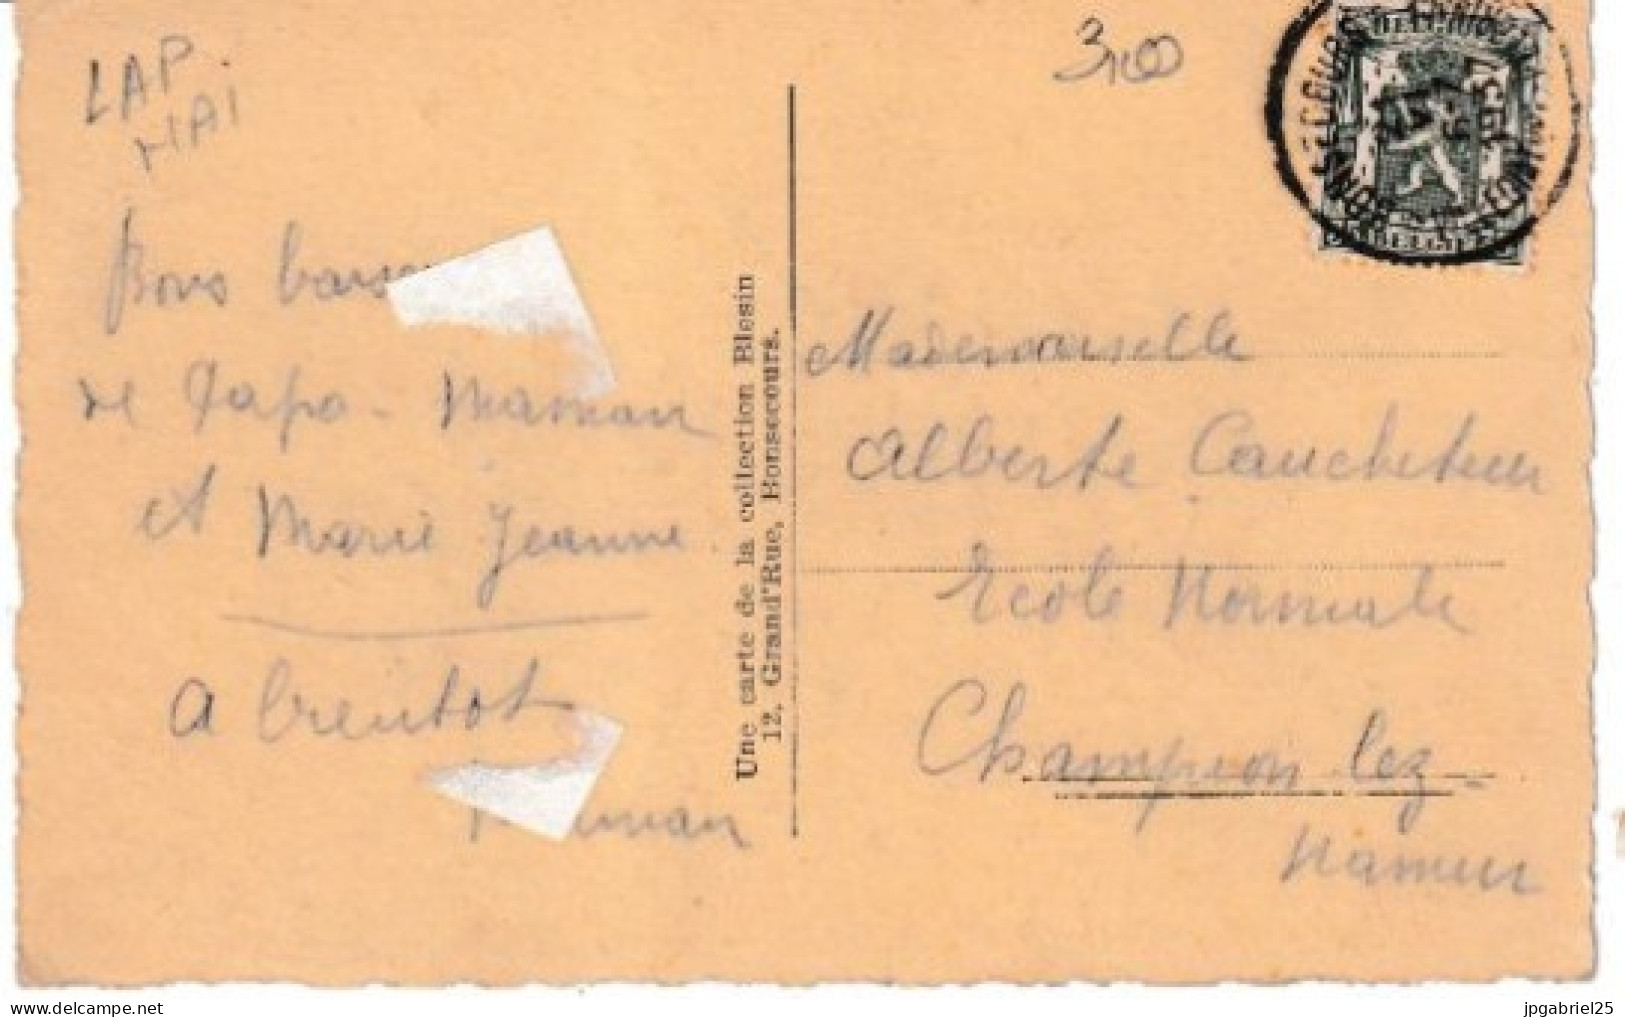 LAP
MAI
3,00
Bons
de Papa - Maman
et Marie Jeanne
a bientot
Une carte de la collection Blesin
12, Grand'Rue, Bonsecours.
BELGIQUE
BELGIE
BONSECOURS
1937
Mademoiselle
Alberte Caucheteur
Ecole Normale
Champion lez
Namur
delcampe.net
jpgabriel25